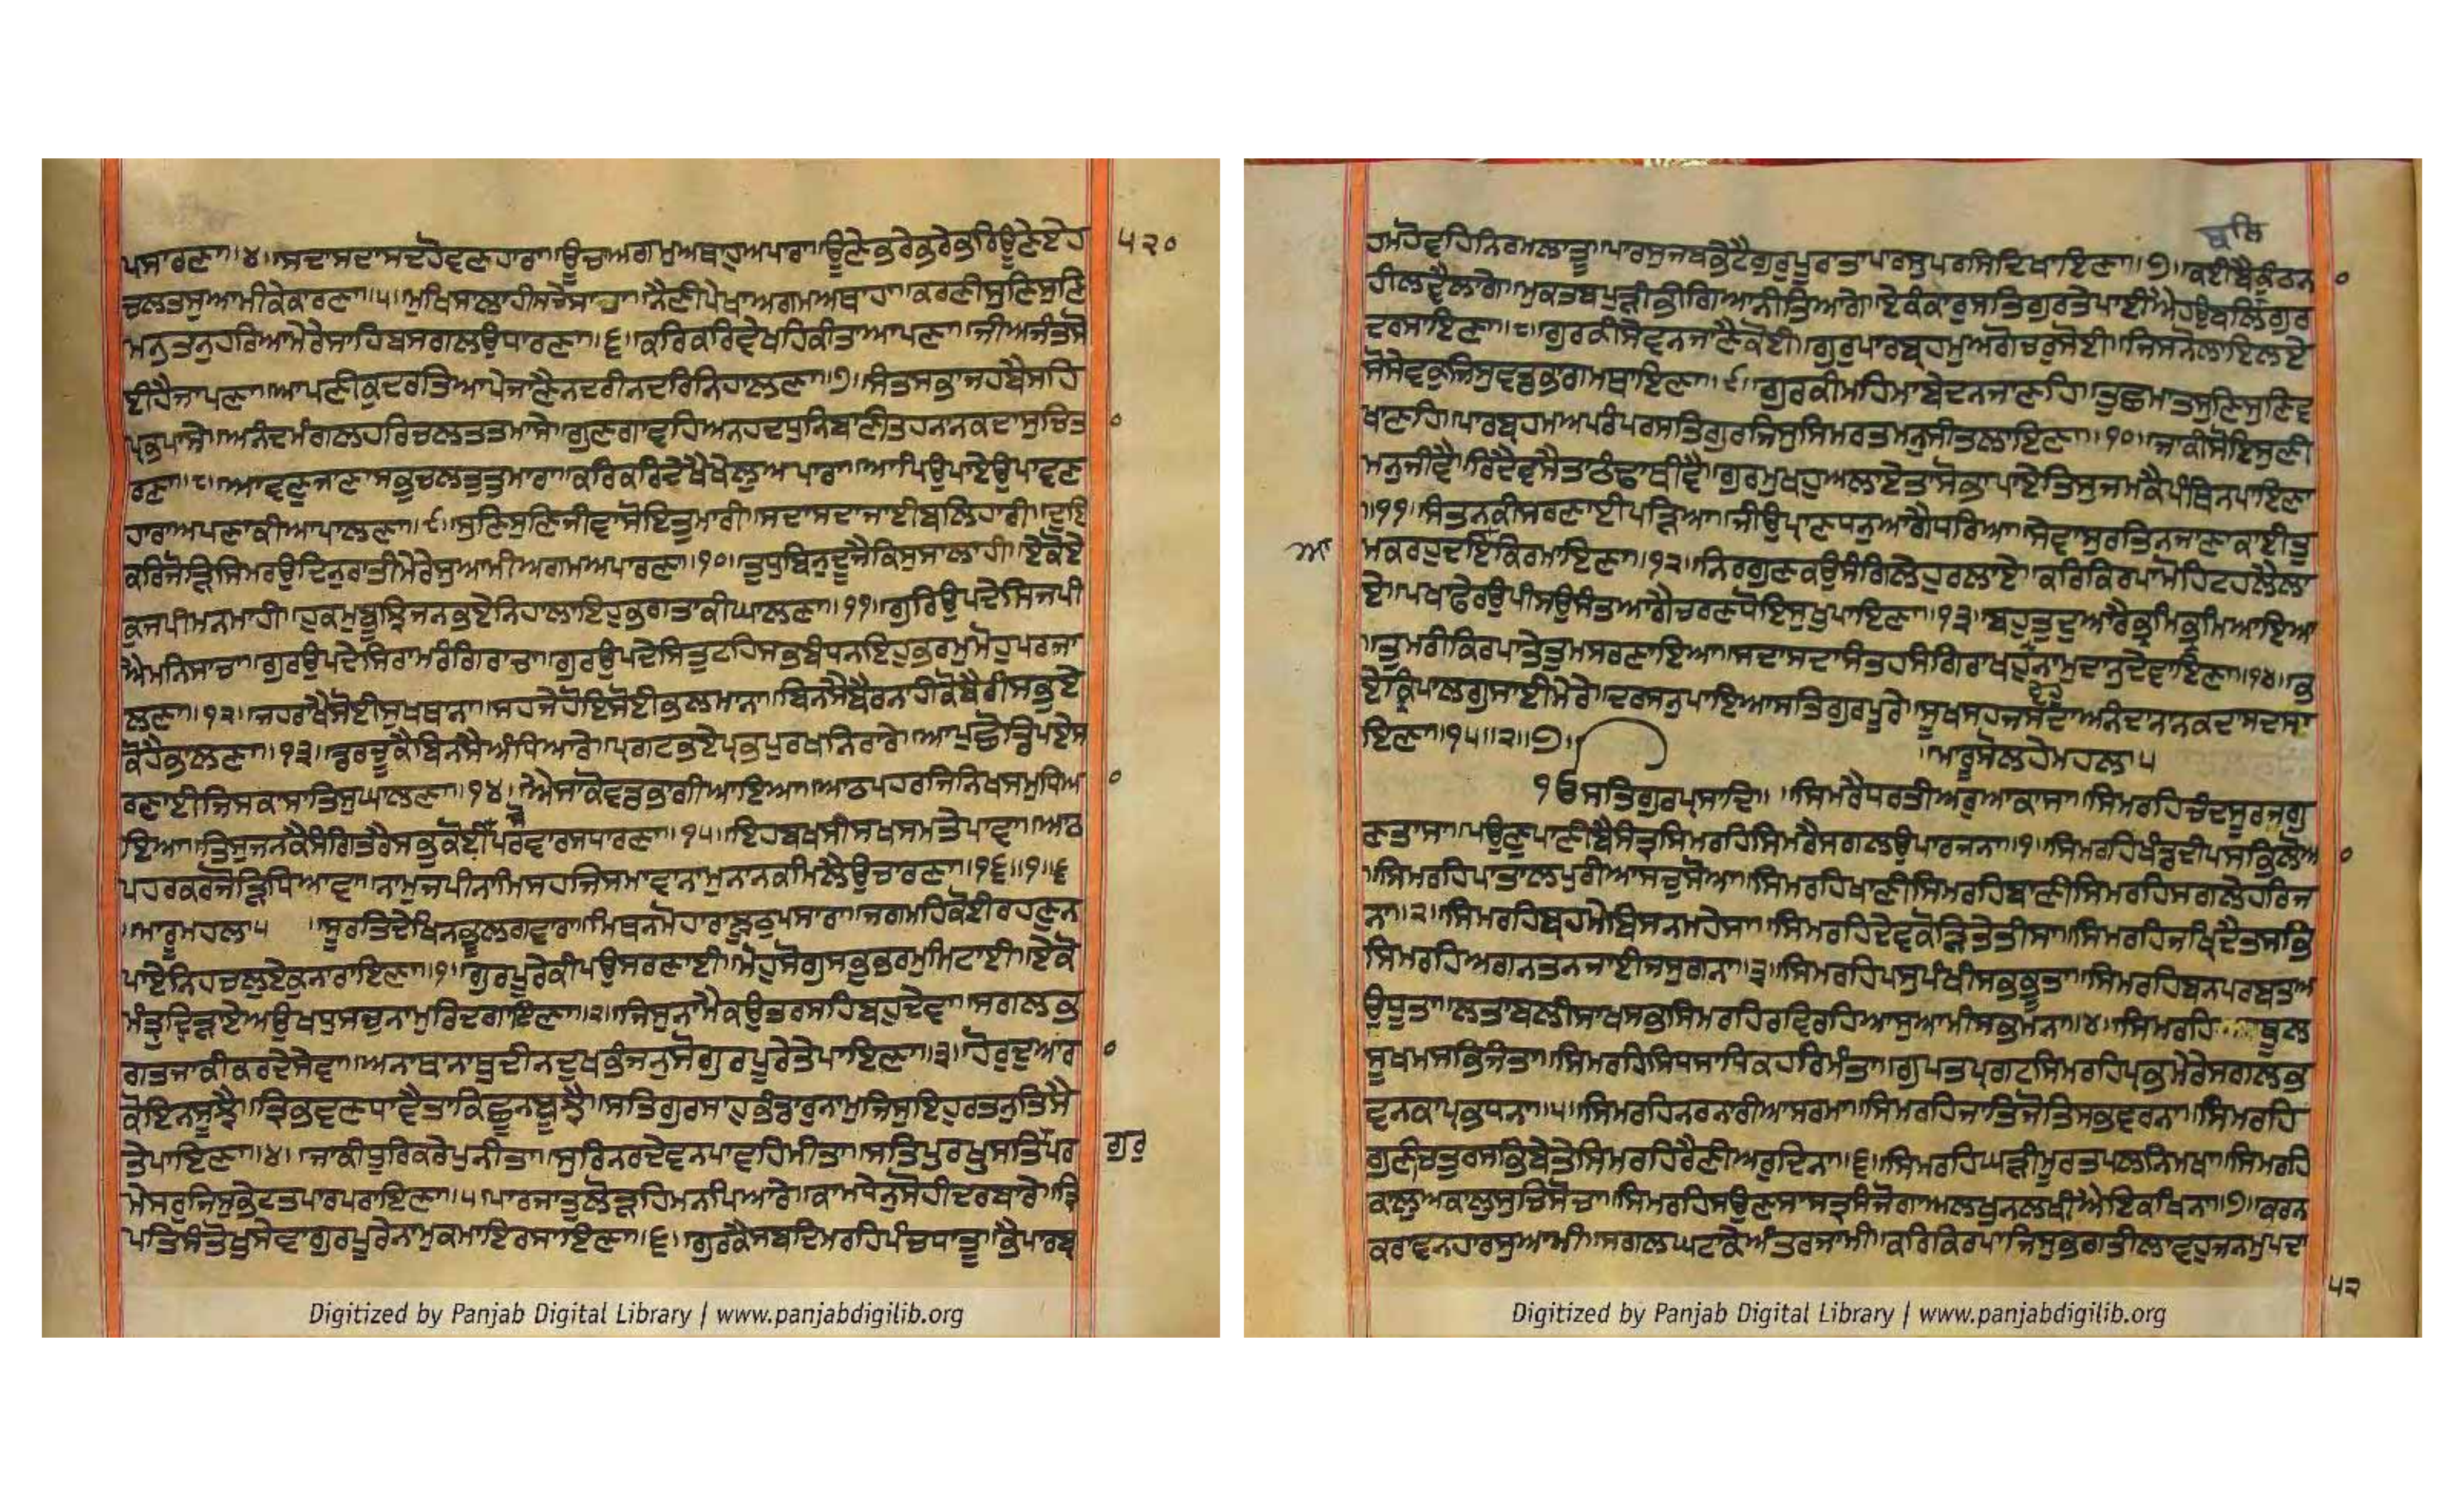 ਪਸਾਰਣਾ॥੪॥ਸਦਾਸਦਾਸਦਹੋਵਣਹਾਰਾ॥ਊਚਾਅਗਮੁਅਥਾਹੁਅਪਾਰਾ॥ਊਣੇਭਰੇਭਰੇਭਰਿਊਣੇਏਹ
੫੨੦
ਚਲਤਸੁਆਮੀਕੇਕਾਰਣਾ॥੫॥ਮੁਖਿਸਾਲਾਹੀਸਚੇਸਾਹਾ॥ਨੈਣੀਪੇਖਾਅਗਮਅਥਾਹਾ॥ਕਰਣੀਸੁਣਿਸੁਣਿ
ਮਨੁਤਨੁਹਰਿਆਮੇਰੇਸਾਹਿਬਸਗਲਉਧਾਰਣਾ॥੬॥ਕਰਿਕਰਿਵੇਖਹਿਕੀਤਾਆਪਣਾ॥ਜੀਅਜੰਤਸੋ
ਈਹੈਜਾਪਣਾ॥ਆਪਣੀਕੁਦਰਤਿਆਪੇਜਾਣੈਨਦਰੀਨਦਰਿਨਿਹਾਲਣਾ॥੭॥ਸੰਤਸਭਾਜਹਬੈਸਹਿ
ਪ੍ਰਭਪਾਸੇ॥ਅਨੰਦਮੰਗਲਹਰਿਚਲਤਤਮਾਸੇ॥ਗੁਣਗਾਵਹਿਅਨਹਦਧੁਨਿਬਾਣੀਤਹਨਾਨਕਦਾਸੁਚਿਤ
ਰਣਾ॥੮॥ਆਵਣੁਜਾਣਾਸਭੁਚਲਤੁਤੁਮਾਰਾ॥ਕਰਿਕਰਿਦੇਖੈਖੇਲੁਅਪਾਰਾ॥ਆਪਿਉਪਾਏਉਪਾਵਣ
ਹਾਰਾਅਪਣਾਕੀਆਪਾਲਣਾ॥੯॥ਸੁਣਿਸੁਣਿਜੀਵਾਸੋਇਤੁਮਾਰੀ॥ਸਦਾਸਦਾਜਾਈਬਲਿਹਾਰੀ॥ਦੁਇ
ਕਰਿਜੋੜਿਸਿਮਰਉਦਿਨੁਰਾਤੀਮੇਰੇਸੁਆਮੀਅਗਮਅਪਾਰਣਾ॥੧੦॥ਤੁਧੁਬਿਨੁਦੂਜੈਕਿਸੁਸਾਲਾਹੀ॥ਏਕੋਏ
ਕੁਜਪੀਮਨਮਾਹੀ॥ਹੁਕਮੁਬੂਝਿਜਨਭਏਨਿਹਾਲਾਇਹੁਭਗਤਾਕੀਘਾਲਣਾ॥੧੧॥ਗੁਰਿਉਪਦੇਸਿਜਪੀ
ਐਮਨਿਸਾਚਾ॥ਗੁਰਉਪਦੇਸਿਰਾਮਰੰਗਿਰਾਚਾ॥ਗੁਰਉਪਦੇਸਿਤੁਟਹਿਸਭਬੰਧਨਇਹੁਭਰਮੁਮੋਹੁਪਰਜਾ
ਲਣਾ॥੧੨॥ਜਹਰਾਖੈਸੋਈਸੁਖਥਾਨਾ॥ਸਹਜੇਹੋਇਸੋਈਭਲਮਾਨਾ॥ਬਿਨਸੇਬੈਰਨਾਹੀਕੋਬੈਰੀਸਭੁਏ
ਕੋਹੈਭਾਲਣਾ॥੧੩॥ਡਰਚੂਕੈਬਿਨਸੈਅੰਧਿਆਰੇ॥ਪ੍ਰਗਟਭਏਪ੍ਰਭਪੁਰਖਨਿਰਾਰੇ॥ਆਪੁਛੋਡਿਪਏਸ
ਰਣਾਈਜਿਸਕਾਸਾਤਿਸੁਘਾਲਣਾ॥੧੪॥ਐਸਾਕੋਵਡਭਾਗੀਆਇਆ॥ਆਠਪਹਰਜਿਨਿਖਸਮੁਧਿਆ
ਇਆ॥ਤਿਸੁਜਨਕੈਸੰਗਿਤਰੈਸਭੁਕੋਈਪਰਵਾਰਸਧਾਰਣਾ॥੧੫॥ਇਹਬਖਸੀਸਖਸਮਤੇਪਾਵਾ॥ਆਠ
ਪਹਰਕਰਜੋੜਿਧਿਆਵਾ॥ਨਾਮੁਜਪੀਨਾਮਿਸਹਜਿਸਮਾਵਾਨਾਮੁਨਾਨਕਮਿਲੈਉਚਾਰਣਾ॥੧੬॥੧॥੬
॥ਮਾਰੂਮਹਲਾ੫ ॥ਸੂਰਤਿਦੇਖਿਨਭੂਲੁਗਵਾਰਾ॥ਮਿਥਨਮੋਹਾਰਾਝੂਠੁਪਸਾਰਾ॥ਜਗਮਹਿਕੋਈਰਹਣੁਨ
ਪਾਏਨਿਹਚਲੁਏਕੁਨਾਰਾਇਣਾ॥੧॥ਗੁਰਪੂਰੇਕੀਪਉਸਰਣਾਈ॥ਮੋਹੁਸੋਗੁਸਭੁਭਰਮੁਮਿਟਾਈ॥ਏਕੋ
ਮੰਤ੍ਰੁਦ੍ਰਿੜਾਏਅਉਖਧੁਸਚੁਨਾਮੁਰਿਦਗਾਇਣਾ॥੨॥ਜਿਸੁਨਾਮੈਕਉਤਰਸਹਿਬਹੁਦੇਵਾ॥ਸਗਲਭ
ਗਤਜਾਕੀਕਰਦੇਸੇਵਾ॥ਅਨਾਥਾਨਾਥੁਦੀਨਦੁਖਭੰਜਨੁਸੋਗੁਰਪੂਰੇਤੇਪਾਇਣਾ॥੩॥ਹੋਰੁਦੁਆਰਾ
ਕੋਇਨਸੂਝੈ॥ਤ੍ਰਿਭਵਣਧਾਵੈਤਾਕਿਛੂਨਬੂਝੈ॥ਸਤਿਗੁਰਸਾਹੁਭੰਡਾਰੁਨਾਮੁਜਿਸੁਇਹੁਰਤਨੁਤਿਸੈ
ਤੇਪਾਇਣਾ॥੪॥ਜਾਕੀਧੂਰਿਕਰੇਪੁਨੀਤਾ॥ਸੁਰਿਨਰਦੇਵਨਪਾਵਹਿਮੀਤਾ॥ਸਤਿਪੁਰਖੁਸਤਿਪਰ
ਗੁਰੁ
ਮੇਸਰੁਜਿਸੁਭੇਟਤਪਾਰਪਰਾਇਣਾ॥੫॥ਪਾਰਜਾਤੁਲੋੜਹਿਮਨਪਿਆਰੇ॥ਕਾਮਧੇਨੁਸੋਹੀਦਰਬਾਰੇ॥ਤ੍ਰਿ
ਪਤਿਸੰਤੋਖੁਸੇਵਾਗੁਰਪੂਰੇਨਾਮੁਕਮਾਇਰਸਾਇਣਾ॥੬॥ਗੁਰਕੈਸਬਦਿਮਰਹਿਪੰਚਧਾਤੂ॥ਭੈਪਾਰਬ੍ਰ
Digitized by Panjab Digital Library | www.panjabdigilib.org
ਹਮਹੋਵਹਿਨਿਰਮਲਾਤੂ॥ਪਾਰਸੁਜਬਭੇਟੈਗੁਰੁਪੂਰਾਤਾਪਾਰਸੁਪਰਸਿਦਿਖਾਇਣਾ॥੭॥ਕਈਬੈਕੁੰਠਨ
ਹੀਲਵੈਲਾਗੇ॥ਮੁਕਤਿਬਪੁੜੀਭੀਗਿਆਨੀਤਿਆਗੇ॥ਏਕੰਕਾਰੁਸਤਿਗੁਰਤੇਪਾਈਐਹਉਬਲਿਗੁਰ
ਦਰਸਾਇਣਾ॥੮॥ਗੁਰਕੀਸੇਵਨਜਾਣੈਕੋਈ॥ਗੁਰੁਪਾਰਬ੍ਰਹਮੁਅਗੋਚਰੁਸੋਈ॥ਜਿਸਨੋਲਾਇਲਏ
ਸੋਸੇਵਕੁਜਿਸੁਵਡਭਾਗਮਥਾਇਣਾ॥੯॥ਗੁਰਕੀਮਹਿਮਾਬੇਦਨਜਾਣਹਿ॥ਤੁਛਮਾਤਸੁਣਿਸੁਣਿਵ
ਖਾਣਹਿ॥ਪਾਰਬ੍ਰਹਮਅਪਰੰਪਰਸਤਿਗੁਰਜਿਸੁਸਿਮਰਤਮਨੁਸੀਤਲਾਇਣਾ॥੧੦॥ਜਾਕੀਸੋਇਸੁਣੀ
ਮਨੁਜੀਵੈ॥ਰਿਦੈਵਸੈਤਾਠੰਢਾਥੀਵੈ॥ਗੁਰਮੁਖਹੁਅਲਾਏਤਾਸੋਭਾਪਾਏਤਿਸੁਜਮਕੈਪੰਥਿਨਪਾਇਣਾ
॥੧੧॥ਸੰਤਨਕੀਸਰਣਾਈਪੜਿਆ॥ਜੀਉਪ੍ਰਾਣਧਨੁਆਗੈਧਰਿਆ॥ਸੇਵਾਸੁਰਤਿਨਜਾਣਾਕਾਈਤੁ
ਮਕਰਹੁਦਇਕਿਰਮਾਇਣਾ॥੧੨॥ਨਿਰਗੁਣਕਉਸੰਗਿਲੇਹੁਰਲਾਏ॥ਕਰਿਕਿਰਪਾਮੋਹਿਟਹਲੈਲਾ
ਏ॥ਪਖਾਫੇਰਉਪੀਸਉਸੰਤਆਗੈਚਰਣਧੋਇਸੁਖੁਪਾਇਣਾ॥੧੩॥ਬਹੁਤੁਦੁਆਰੈਭ੍ਰਮਿਭ੍ਰਮਿਆਇਆ
॥ਤੁਮਰੀਕਿਰਪਾਤੇਤੁਮਸਰਣਾਇਆ॥ਸਦਾਸਦਾਸੰਤਹਸੰਗਿਰਾਖਹੁਨਾਮੁਦਾਨੁਦੇਵਾਇਣਾ॥੧੪॥ਭ
ਏਕ੍ਰਿਪਾਲਗੁਸਾਈਮੇਰੇ॥ਦਰਸਨੁਪਾਇਆਸਤਿਗੁਰਪੂਰੇ॥ਸੂਖਸਹਜਸਦਾਅਨੰਦਾਨਾਨਕਦਾਸਦਾਸਾ
ਇਣਾ॥੧੫॥੨॥੭॥
॥ਮਾਰੂਸੋਲਹੇਮਹਲਾ੫
ੴਸਤਿਗੁਰਪ੍ਰਸਾਦਿ॥ ॥ਸਿਮਰੈਧਰਤੀਅਰੁਆਕਾਸਾ॥ਸਿਮਰਹਿਚੰਦਸੂਰਜਗੁ
ਣਤਾਸਾ॥ਪਉਣੁਪਾਣੀਬੈਸੰਤ੍ਰਸਿਮਰਹਿਸਿਮਰੈਸਗਲਉਪਾਰਜਨਾ॥੧॥ਸਿਮਰਹਿਖੰਡਦੀਪਸਭਿਲੋਅ
॥ਸਿਮਰਹਿਪਾਤਾਲਪੁਰੀਆਸਚੁਸੋਆ॥ਸਿਮਰਹਿਖਾਣੀਸਿਮਰਹਿਬਾਣੀਸਿਮਰਹਿਸਗਲੇਹਰਿਜ
ਨਾ॥੨॥ਸਿਮਰਹਿਬ੍ਰਹਮੇਬਿਸਨਮਹੇਸਾ॥ਸਿਮਰਹਿਦੇਵਤੇਕੋੜਿਤੇਤੀਸਾ॥ਸਿਮਰਹਿਜਖ੍ਯਿਦੈਤਸਭਿ
ਸਿਮਰਹਿਅਗਨਤਨਜਾਈਜਸੁਗਨਾ॥੩॥ਸਿਮਰਹਿਪਸੁਪੰਖੀਸਭਭੂਤਾ॥ਸਿਮਰਹਿਬਨਪਰਬਤਅ
ਉਧੂਤਾ॥ਲਤਾਬਲੀਸਾਖਸਭਸਿਮਰਹਿਰਵਿਰਹਿਆਸੁਆਮੀਸਭਮਨਾ॥੪॥ਸਿਮਰਹਿ ਥੂਲ
ਸੂਖਮਸਭਿਜੰਤਾ॥ਸਿਮਰਹਿਸਿਧਸਾਧਿਕਹਰਿਮੰਤਾ॥ਗੁਪਤਪ੍ਰਗਟਸਿਮਰਹਿਪ੍ਰਭਮੇਰੇਸਗਲਭ
ਵਨਕਾਪ੍ਰਭਧਨਾ॥੫॥ਸਿਮਰਹਿਨਰਨਾਰੀਆਸਰਮਾ॥ਸਿਮਰਹਿਜਾਤਿਜੋਤਿਸਭਵਰਨਾ॥ਸਿਮਰਹਿ
ਗੁਣੀਚਤੁਰਸਭਿਬੇਤੇਸਿਮਰਹਿਰੈਣੀਅਰੁਦਿਨਾ॥੬॥ਸਿਮਰਹਿਘੜੀਮੂਰਤਪਲਨਿਮਖਾ॥ਸਿਮਰਹਿ
ਕਾਲੁਅਕਾਲੁਸੁਚਿਸੋਚਾ॥ਸਿਮਰਹਿਸਉਣਸਾਸਤ੍ਰਸੰਜੋਗਾਅਲਖੁਨਲਖੀਐਇਕੁਖਿਨਾ॥੭॥ਕਰਨ
ਕਰਾਵਨਹਾਰਸੁਆਮੀ॥ਸਗਲਘਟਾਕੇਅੰਤਰਜਾਮੀ॥ਕਰਿਕਿਰਪਾਜਿਸੁਭਗਤੀਲਾਵਹੁਜਨਮੁਪਦਾ
੫੨
Digitized by Panjab Digital Library | www.panjabdigilib.org